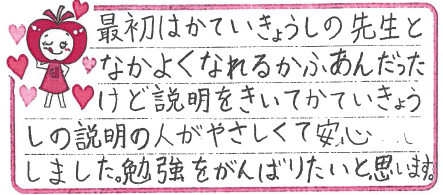 最初はかていきょうしの先生と
なかよくなれるかふあんだった
けど説明をきいてかていきょう
しの説明の人がやさしくて安心
しました。勉強をがんばりたいと思います。